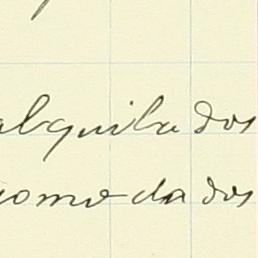 alquila dos
como da dos